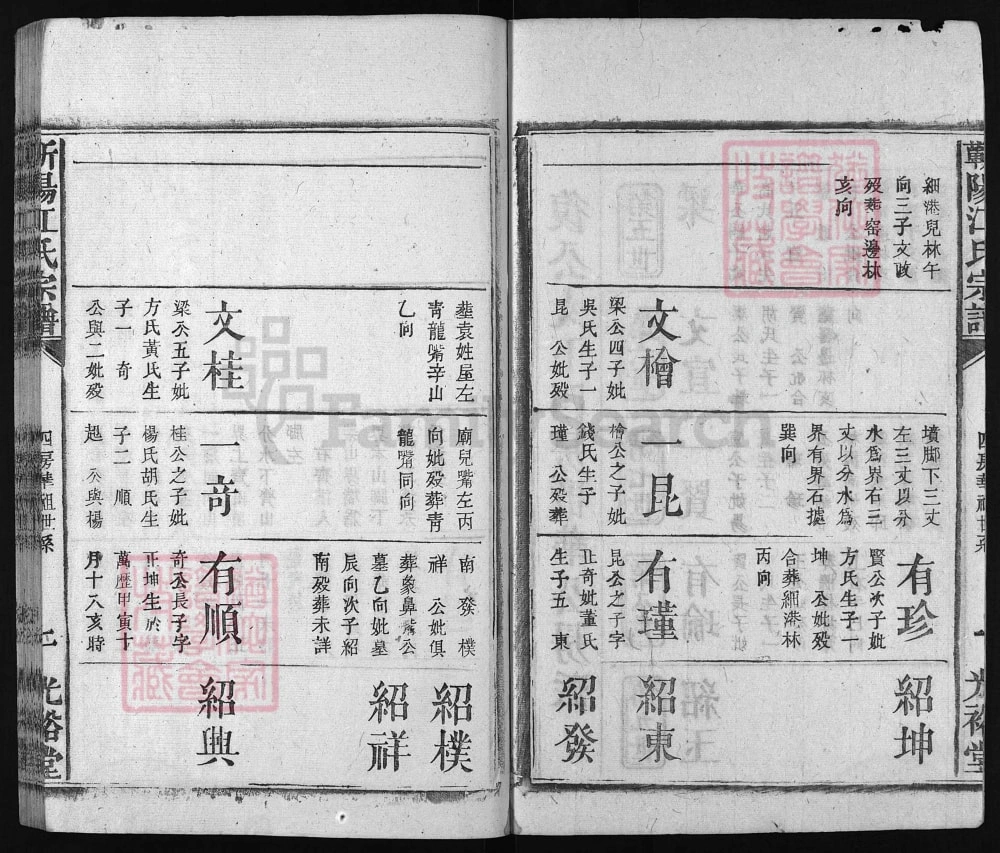 蘄陽江氏宗譜
四房華祖世系
光裕堂
細港兒林午
向三子文政
歿葬窑邊林
亥向
文檜
梁公四子妣
吳氏生子一
昆 公妣歿
葬袁姓屋左
青龍嘴辛山
乙向
文桂
梁公五子妣
方氏黃氏生
子一 奇
公與二妣歿
墳脚下三丈
左三丈以分
水為界右三
丈以分水為
界有界石據
巽向
一昆
檜公之子妣
錢氏生子一
瑾 公歿葬
廟兒嘴左丙
向妣歿葬青
龍嘴同向
一奇
桂公之子妣
楊氏胡氏生
子二 順
起 公與楊
有珍
賢公次子妣
方氏生子一
坤 公妣歿
合葬細港林
丙向
有瑾
昆公之子字
正奇妣董氏
生子五 東
南 發 樸
祥 公妣俱
葬象鼻嘴公
墓乙向妣墓
辰向次子紹
南歿葬未詳
有順
奇公長子字
正坤生於
萬歷甲寅十
月十八亥時
紹坤
紹東
紹發
紹樸
紹祥
紹興
蘄陽江氏宗譜
四房華祖世系
七
光裕堂